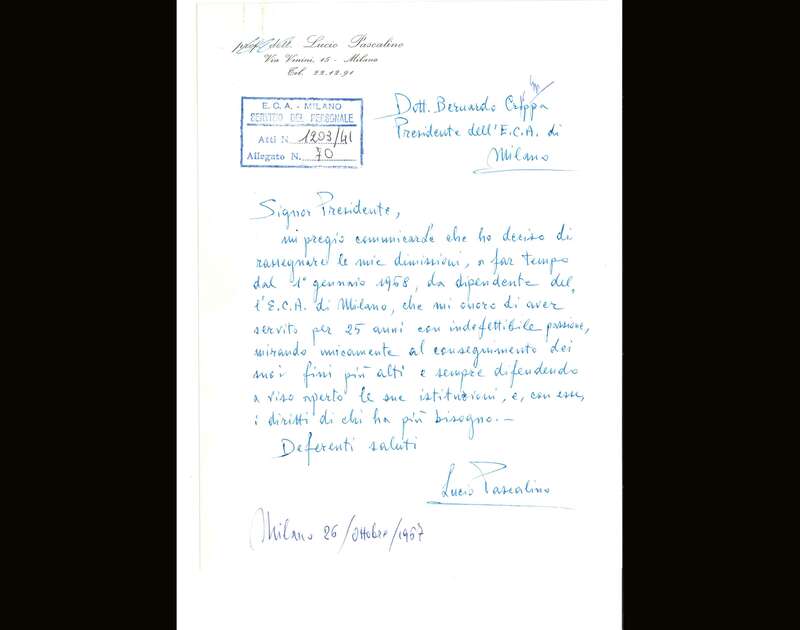 prof. dott. Lucio Pascalino
Via Vinini, 15 - Milano
Tel. 22.12.91
E. C. A. - MILANO
SERVIZIO DEL PERSONALE
Atti N. 1293/41
Allegato N. 70
Dott. Bernardo Crippa
Presidente dell'E.C.A. di
Milano
Signor Presidente,
mi pregio comunicarLe che ho deciso di
rassegnare le mie dimissioni, a far tempo
dal 1° gennaio 1968, da dipendente del
l'E.C.A. di Milano, che mi onoro di aver
servito per 25 anni con indefettibile passione,
mirando unicamente al conseguimento dei
suoi fini più alti e sempre difendendo
a viso aperto le sue istituzioni, e, con esse,
i diritti di chi ha più bisogno. -
Deferenti saluti
Lucio Pascalino
Milano 26/ottobre/1967